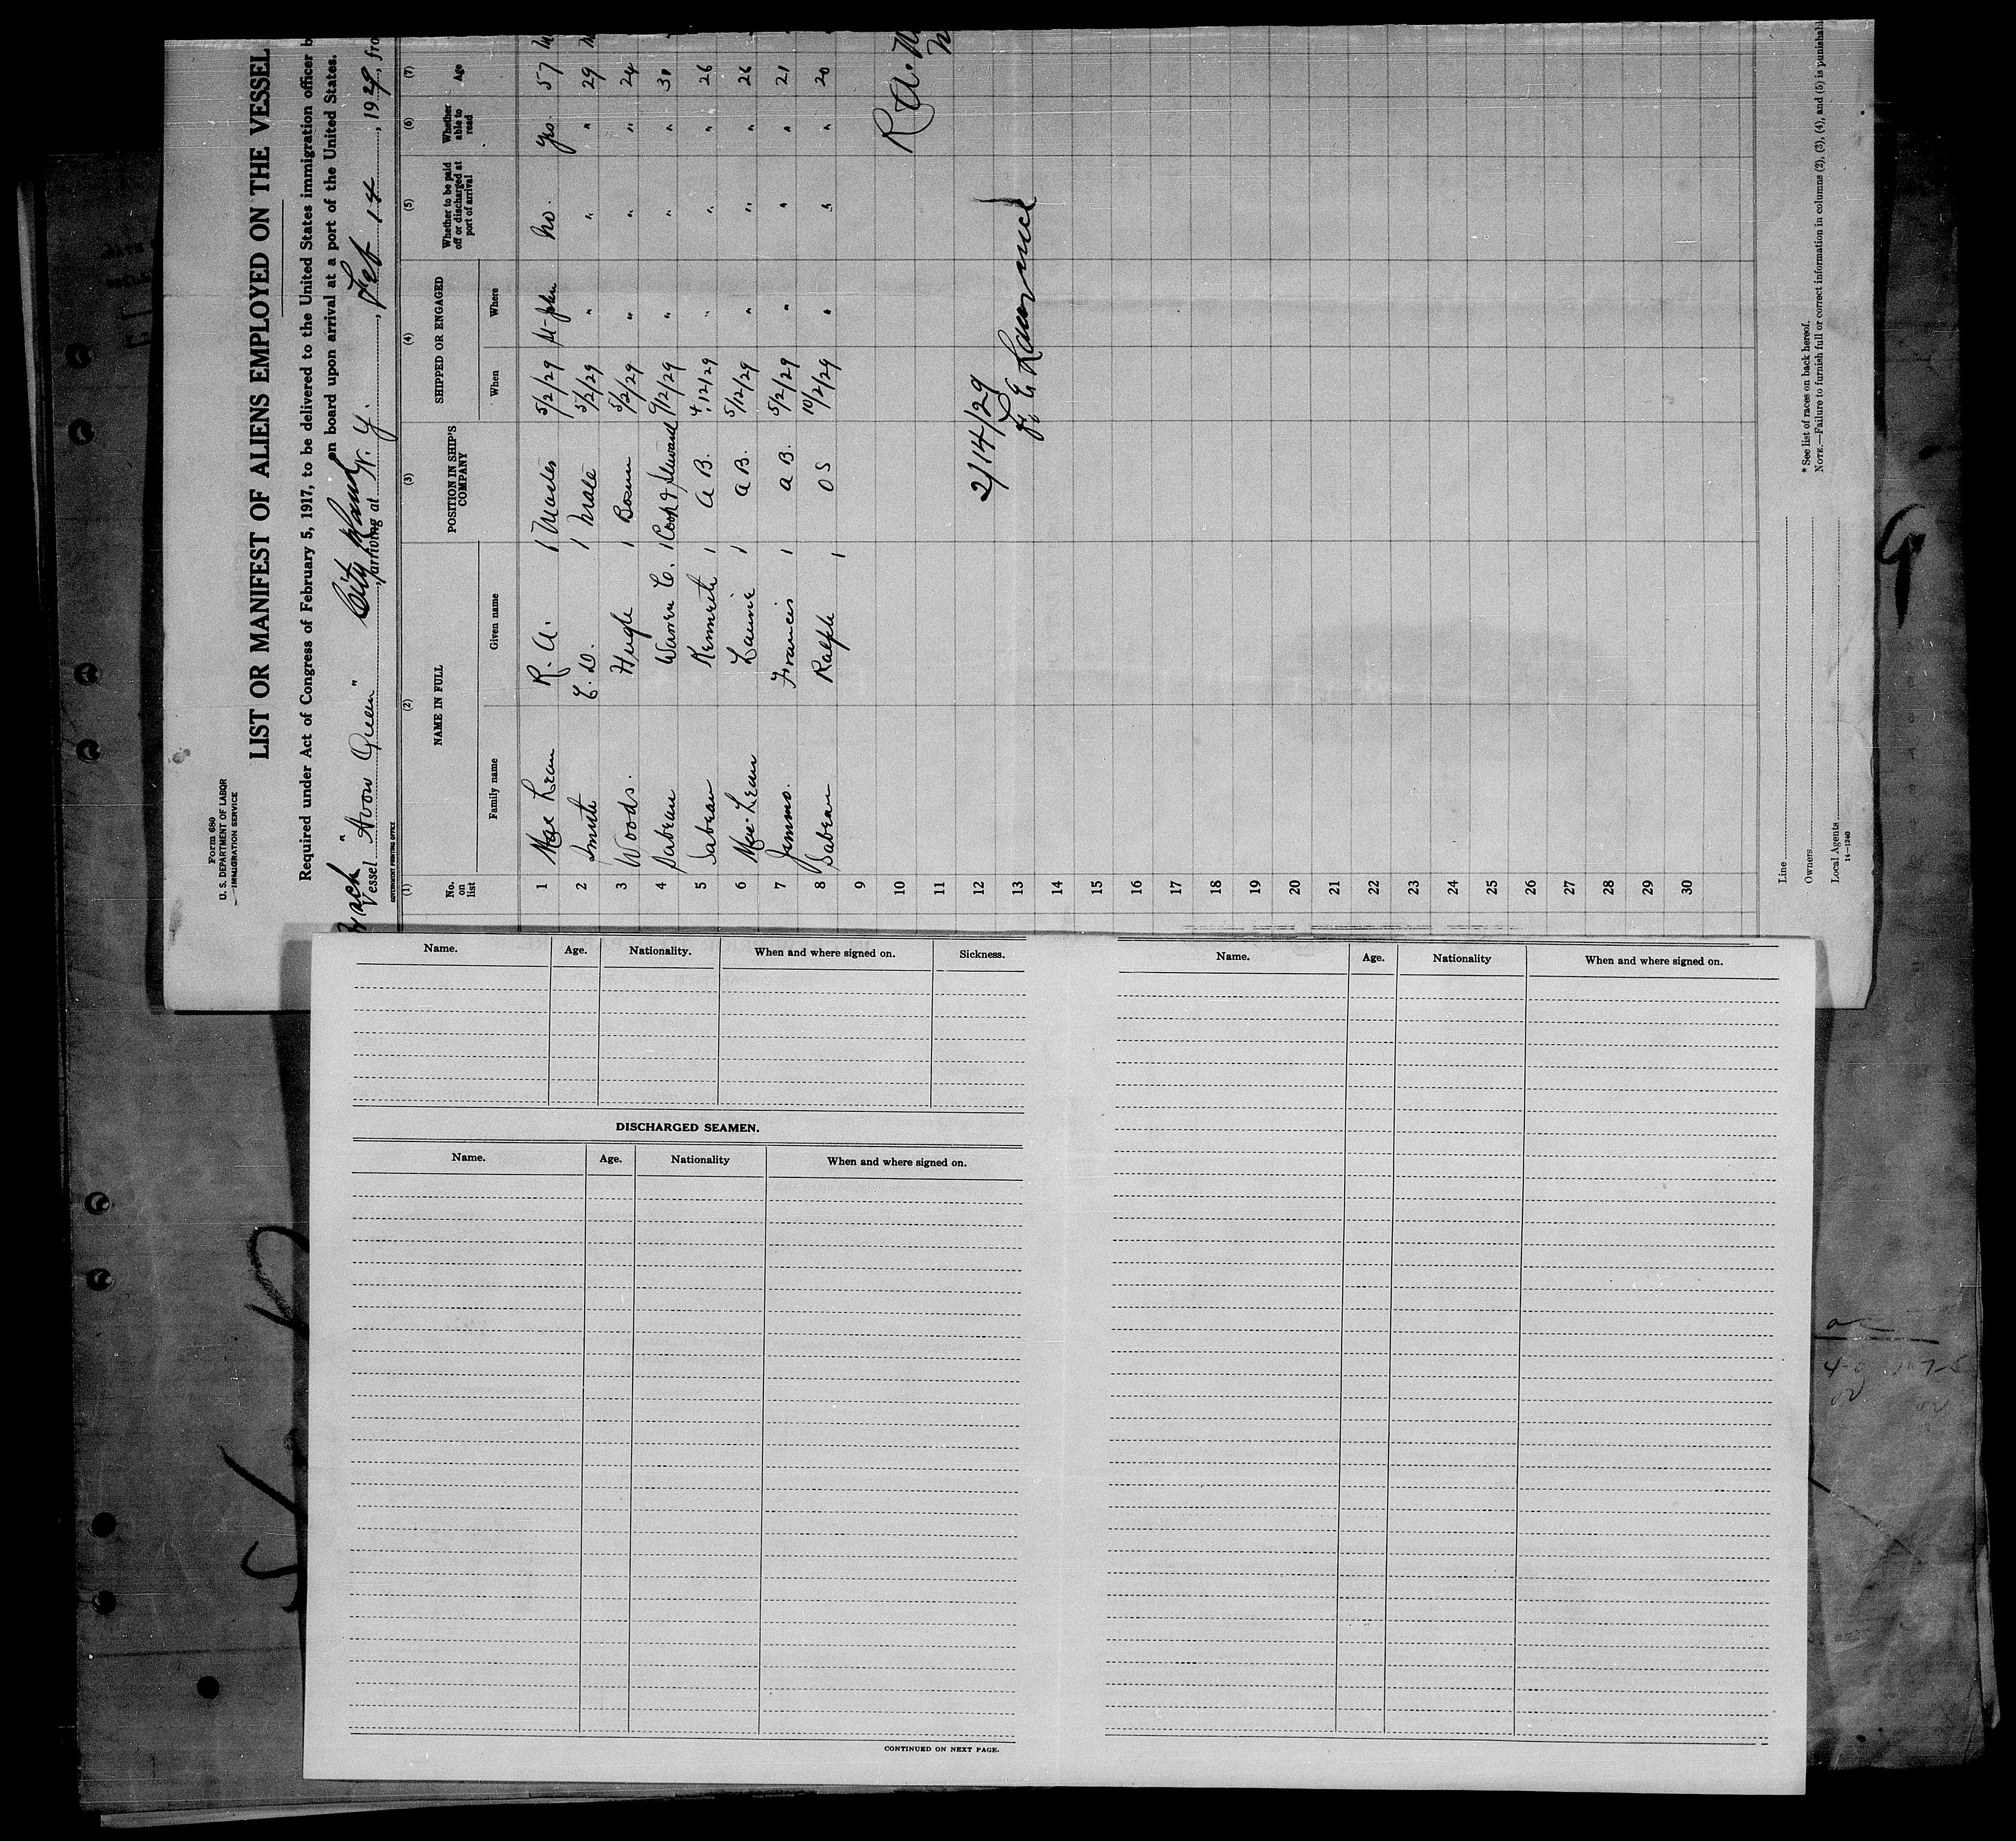 Form 680
U. S. DEPARTMENT OF LABOR
IMMIGRATION SERVICE
LIST OR MANIFEST OF ALIENS EMPLOYED ON THE VESSEL
Required under Act of Congress of February 5, 1917, to be delivered to the United States immigration officer b
on board upon arrival at a port of the United States.
Vessel "Avon Queen", arriving at City Island N. Y., Feb 14, 1929, fro
GOVERNMENT PRINTING OFFICE
(1) (2) (3) (4) (5) (6) (7)
No. on list
NAME IN FULL
Family name
Given name
POSITION IN SHIP'S COMPANY
SHIPPED OR ENGAGED
When
Where
Whether to be paid off or discharged at port of arrival
Whether able to read
Age
1 Mac Lean R. A. 1 Master 5/2/29 St. John no. yes. 57
2 Smith E. D. 1 Mate 5/2/29 " " " 29
3 Woods. Hugh 1 Bosun 5/2/29 " " " 24
4 Sabean Warren C. 1 Cook & Steward 9/12/29 " " " 30
5 Sabean Kenneth 1 A B. 4/12/29 " " " 26
6 Mac Lean Laurie 1 A B. 5/12/29 " " " 26
7 Jimmo. Francis 1 A B. 5/2/29 " " " 21
8 Sabean Ralph 1 O S 10/2/29 " " " 20
9
10 R. A.
11
12 2/14/29
13 Lawrence
14
15
16
17
18
19
20
21
22
23
24
25
26
27
28
29
30
Line
Owners
Local Agents
14—1240
* See list of races on back hereof.
NOTE.—Failure to furnish full or correct information in columns (2), (3), (4), and (5) is punishabl
Name. Age. Nationality. When and where signed on. Sickness.
DISCHARGED SEAMEN.
Name. Age. Nationality When and where signed on.
CONTINUED ON NEXT PAGE.
Name. Age. Nationality When and where signed on.